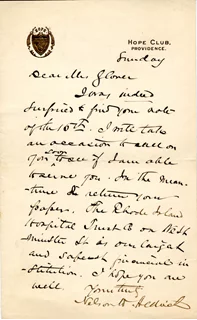 HOPE CLUB,
PROVIDENCE.
Sunday
Dear Mr. Glover
I was indeed
surprised to find your note
of the 10th. I will take
an occasion to call on
you soon & see if I am able
to serve you. In the mean-
time I return your
papers. The Rhode Island
Hospital Trust Co on West-
minster St is our largest
and safest financial in-
stitution. I hope you are
well.
Yours truly
Nelson W. Aldrich